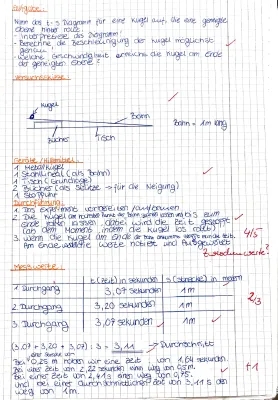 Aufgabe:
Nimm das t-s Diagramm für eine Kugel auf, die eine geneigte
Ebene hinab rollt.
· Interpretiere das Diagramm!
· Berechne die Beschleunigung der Kugel möglichst
genau.
· Welche Geschwindigkeit erreicht die Kugel am Ende
der geneigten Ebene?
Versuchsskizze:
Kugel
Bahn
Bahn = 1m lang
Bücher
Tisch
Geräte / Hilfsmittel:
1 Metallkugel
1 Stahllineal (als Bahn)
1 Tisch (Grundlage)
2 Bücher (als Stütze → für die Neigung)
1 Stoppuhr
Durchführung:
1. Das Experiment vorbereiten/aufbauen
2. Die Kugel am bis zum
Ende rollen lassen, dabei wird die Zeit gestoppt
(an dem Moment, indem die Kugel los rollt)
3. wenn die Kugel am Ende der die Zeit.
Am Ende werden die Werte notiert und ausgewertet
4/5
Zwischenwerte?
Messwerte:
t (Zeit) in Sekunden
s (Strecke) in Metern
1 Durchgang
3,07 Sekunden
1m
2 Durchgang
3,20 Sekunden
1m
3 Durchgang
3,07 Sekunden
1m
2/3
(3,07 + 3,20 + 3,07) : 3 = 3,11 → Durchschnitt
Bei 0,25 m haben wir eine Zeit von 1,64 Sekunden.
Bei einer Zeit von 2,22 Sekunden einen Weg von 0,5m.
Bei einer Zeit von einen Weg von 0,75.
und bei einer Durchschnittlichen Zeit von 3,11 s den
Weg von 1m.
+1